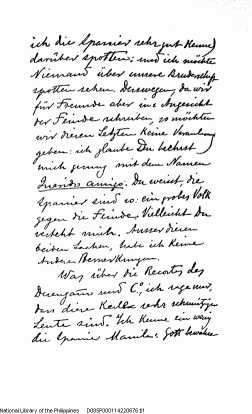 ich die Spanier sehr gut kenne)
darüber spotten; und ich möchte
Niemand über unsere Bruderschaft
spotten sehen. Deswegen, da wir
für Freunde aber ins Angesicht
der Feinde schreiben, so möchten
wir diesen Letzten keine
geben: ich glaube Du
mich genug mit dem Namen
Querido amigo. Du weisst, die
Spanier sind so: ein grobes Volk
gegen die Feinde. Vielleicht Du
verstehst mich. Ausser diesen
beiden Sachen, habe ich keine
Andere Bemerkungen.
Was über die Recortes des
und Co. ich sage nur,
dass diese Kerle sehr schmutzige
Leute sind. Ich kenne ein wenig
die Spanier Manila's, Gott bewahre
National Library of the Philippines D00SP000114220676.tif